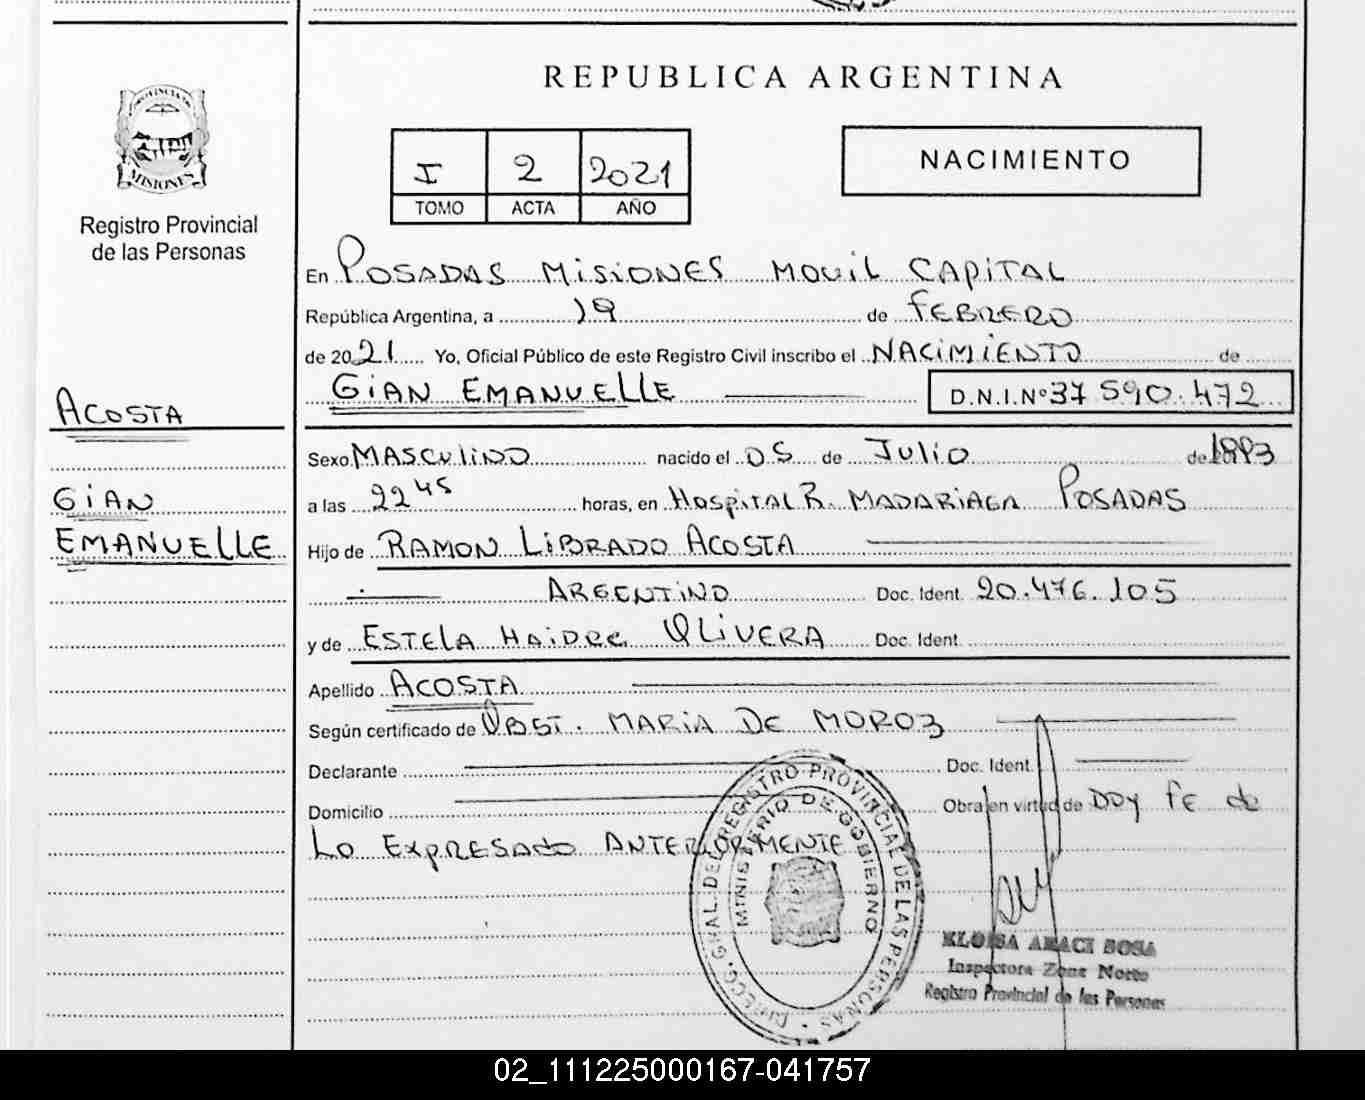 REPUBLICA ARGENTINA
PROVINCIA DE
MISIONES
Registro Provincial
de las Personas
I 2 2021
TOMO ACTA AÑO
NACIMIENTO
En POSADAS MISIONES MOVIL CAPITAL
República Argentina, a 19 de FEBRERO
de 2021 Yo, Oficial Público de este Registro Civil inscribo el NACIMIENTO de
GIAN EMANUELLE D.N.I.Nº 37 590.472
ACOSTA
GIAN
EMANUELLE
Sexo MASCULINO nacido el 05 de JULIO de 1993
a las 22 45 horas, en HOSPITAL R. MADARIAGA POSADAS
Hijo de RAMON LIBRADO ACOSTA
ARGENTINO Doc. Ident. 20.476.105
y de ESTELA HAIDEE OLIVERA Doc. Ident.
Apellido ACOSTA
Según certificado de OBST. MARIA DE MOROZ
Declarante Doc. Ident.
Domicilio Obra en virtud de DOY FE de
LO EXPRESADO ANTERIORMENTE
DIRECC. GRAL. DEL REGISTRO PROVINCIAL DE LAS PERSONAS
MINISTERIO DE GOBIERNO
ELOISA ARACI SOSA
Inspectora Zona Norte
Registro Provincial de las Personas
02_111225000167-041757